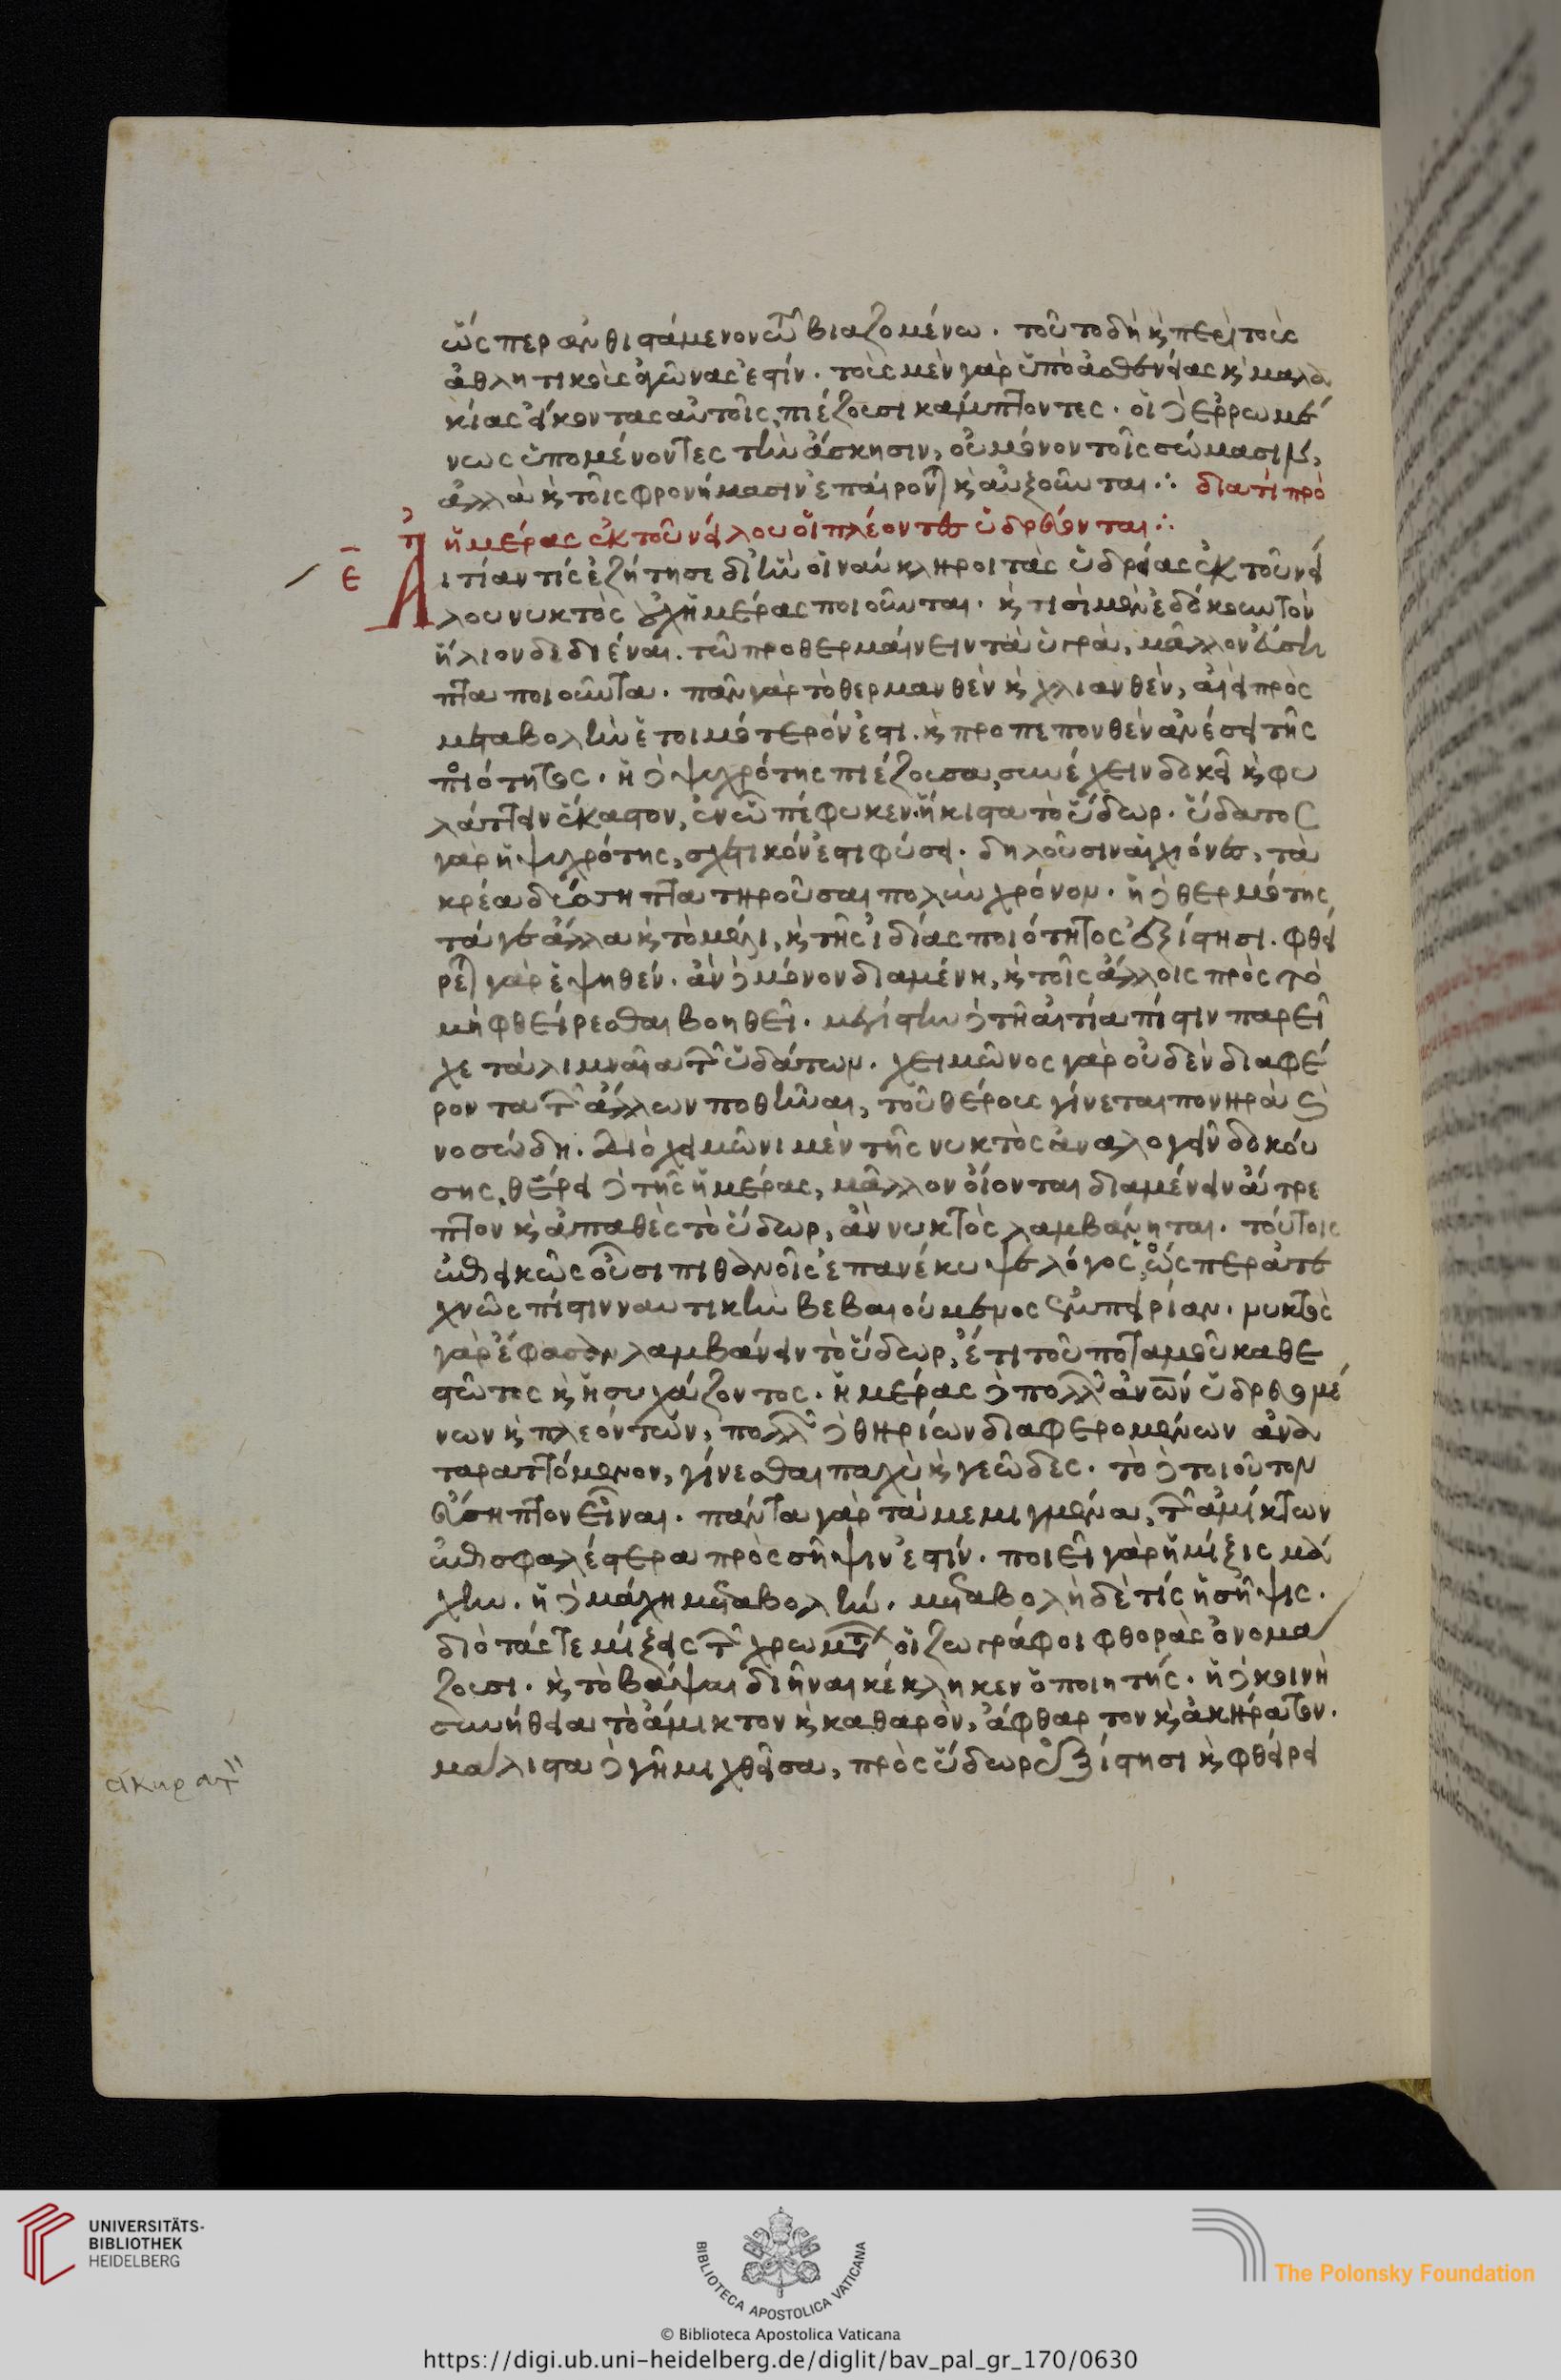 ὥσπερ ἀνθιστάμενον τῷ βιαζομένῳ. τοῦτο δὴ κ περὶ τοὺς
ἀθλητικοὺς ἀγῶνας ἐστίν. τοὺς μὲν γὰρ ὑπὸ ἀσθενείας κ μαλα
κίας εἴκοντας αὐτοῖς, πιέζουσι κάμπτοντες. οἱ δ ἐρρωμέ
νως ὑπομένοντες τὴν ἄσκησιν, οὐ μόνον τοῖς σώμασιν,
ἀλλὰ κ τοῖς φρονήμασιν ἐπαίρονται κ αὔξονται ∴ διατί πρὸ
τ ἡμέρας ἐκ τοῦ νείλου οἱ πλέοντες ὑδρεύονται ∴
ε Αἰτίαν τίς ἐζήτησε δι' ἣν οἱ ναύκληροι τὰς ὑδρείας ἐκ τοῦ νεί
λου νυκτὸς οὐχ ἡμέρας ποιοῦνται. κ τισὶ μὲν ἐδόκουν τὸν
ἥλιον δεδιέναι. τῷ προθερμαίνειν τὰ ὑγρὰ, μᾶλλον εὔση
πτα ποιοῦντα. πᾶν γὰρ τὸ θερμανθὲν κ χλιανθὲν, ἀεὶ πρὸς
μεταβολὴν ἑτοιμότερόν ἐστι. κ προπεπονθὲν ἀνέσει τῆς
ποιότητος. ἡ δ ψυχρότης πιέζουσα, συνέχειν δοκεῖ κ φυ
λάττειν ἕκαστον, ἐν ᾧ πέφυκεν. ἥκιστα τὸ ὕδωρ. ὕδατος
γὰρ ἡ ψυχρότης, σχετικόν ἐστι φύσει. δηλοῦσιν αἱ χιόνες, τὰ
κρέα δύσηπτα τηροῦσαι πολὺν χρόνον. ἡ δ θερμότης
τά γε ἄλλα κ τὸ μέλι, κ τῆς ἰδίας ποιότητος ἐξίστησι. φθεί
ρεται γὰρ ἑψηθέν. ἂν δ μόνον διαμένη, κ τοῖς ἄλλοις πρὸς τὸ
μὴ φθείρεσθαι βοηθεῖ. μεγίστην δ τῇ αἰτία πίστιν παρεῖ
χε τὰ λιμναῖα τῶν ὑδάτων. χειμῶνος γὰρ οὐδὲν διαφέ
ροντα τῶν ἄλλων ποθῆναι, τοῦ θέρους γίνεται πονηρὰ κ
νοσώδη. διὸ χειμῶνι μὲν τῆς νυκτὸς ἀναλογεῖν δοκού
σης, θέρει δ τῆς ἡμέρας, μᾶλλον οἴονται διαμένειν ἄτρε
πτον κ ἀπαθὲς τὸ ὕδωρ, ἂν νυκτὸς λαμβάνηται. τούτοις
ἐπιεικῶς οὖσι πιθανοῖς ἐπανέκυψε λόγος, ὥσπερ ἀτε
χνῶς πίστιν ναυτικὴν βεβαιούμενος ἐμπειρίαν. νυκτὸς
γὰρ ἔφασαν λαμβάνειν τὸ ὕδωρ, ἔτι τοῦ ποταμοῦ καθε
στῶτος κ ἡσυχάζοντος. ἡμέρας δ πολλῶν ἀνων ὑδρευομέ
νων κ πλεόντων, πολλῶν δ θηρίων διαφερομένων ἀνα
ταραττόμενον, γίνεσθαι παχὺ κ γεῶδες. τὸ δ τοιοῦτον
εὔσηπτον εἶναι. πάντα γὰρ τὰ μεμιγμένα, τῶν ἀμίκτων
ἐπισφαλέστερα πρὸς σῆψιν ἐστίν. ποιεῖ γὰρ ἡ μίξις μά
χην. ἡ δ μάχη μεταβολήν. μεταβολὴ δὲ τίς ἡ σῆψις.
διὸ τάς τε μίξεις τῶν χρωμάτων οἱ ζωγράφοι φθορὰς ὀνομά
ζουσι. κ τὸ βάψαι διῆναι κέκληκεν ὁ ποιητής. ἡ δ κοινὴ
συνήθεια τὸ ἄμικτον κ καθαρὸν, ἄφθαρτον κ ἀκήρατον.
μάλιστα δ γῆ μιχθεῖσα, πρὸς ὕδωρ ἐξίστησι κ φθείρει
ἀκήρατ
UNIVERSITÄTS-
BIBLIOTHEK
HEIDELBERG
BIBLIOTECA APOSTOLICA VATICANA
© Biblioteca Apostolica Vaticana
The Polonsky Foundation
https://digi.ub.uni-heidelberg.de/diglit/bav_pal_gr_170/0630